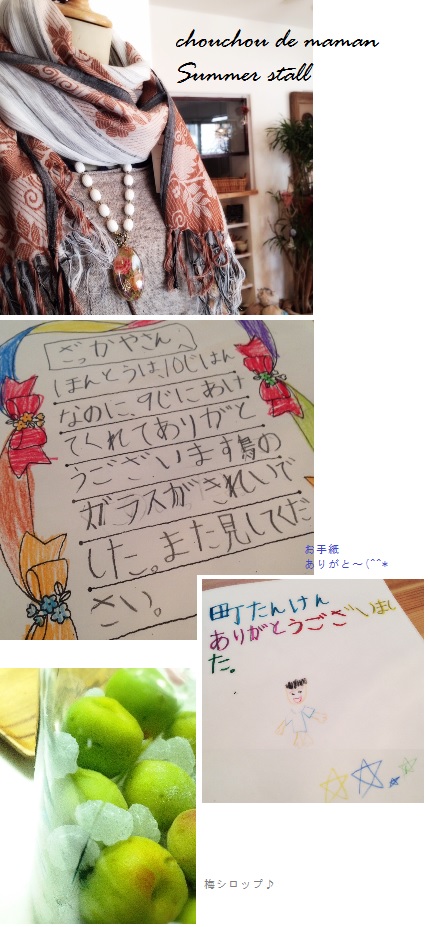 chouchou de maman
Summer stall
ざっかやさんへ
ほんとうは、10じはん
なのに、9じにあけ
てくれてありがと
うございます鳥の
ガラスがきれいで
した。また見してくだ
さい。
お手紙
ありがと～(^^*
町たんけん
ありがとうございまし
た。
梅シロップ♪